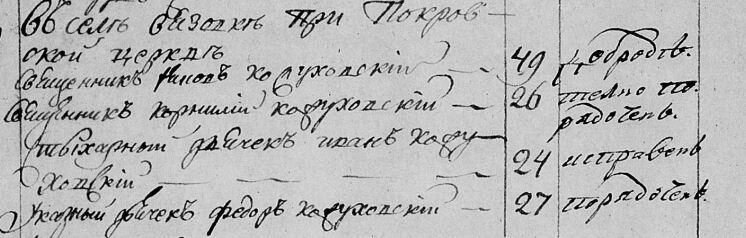 въ селѣ Визовкѣ при Покров-
ской церквѣ
священникъ Яковъ Кожуховскій — 49 добродѣ-
священникъ Корнилій Кожуховскій — 26 телно по-
рядоченъ.
стыхарный дьячекъ иванъ Кожу-
ховскій — 24 исправенъ
Указный дьячекъ федоръ Кожуховскій — 27 порядоченъ.